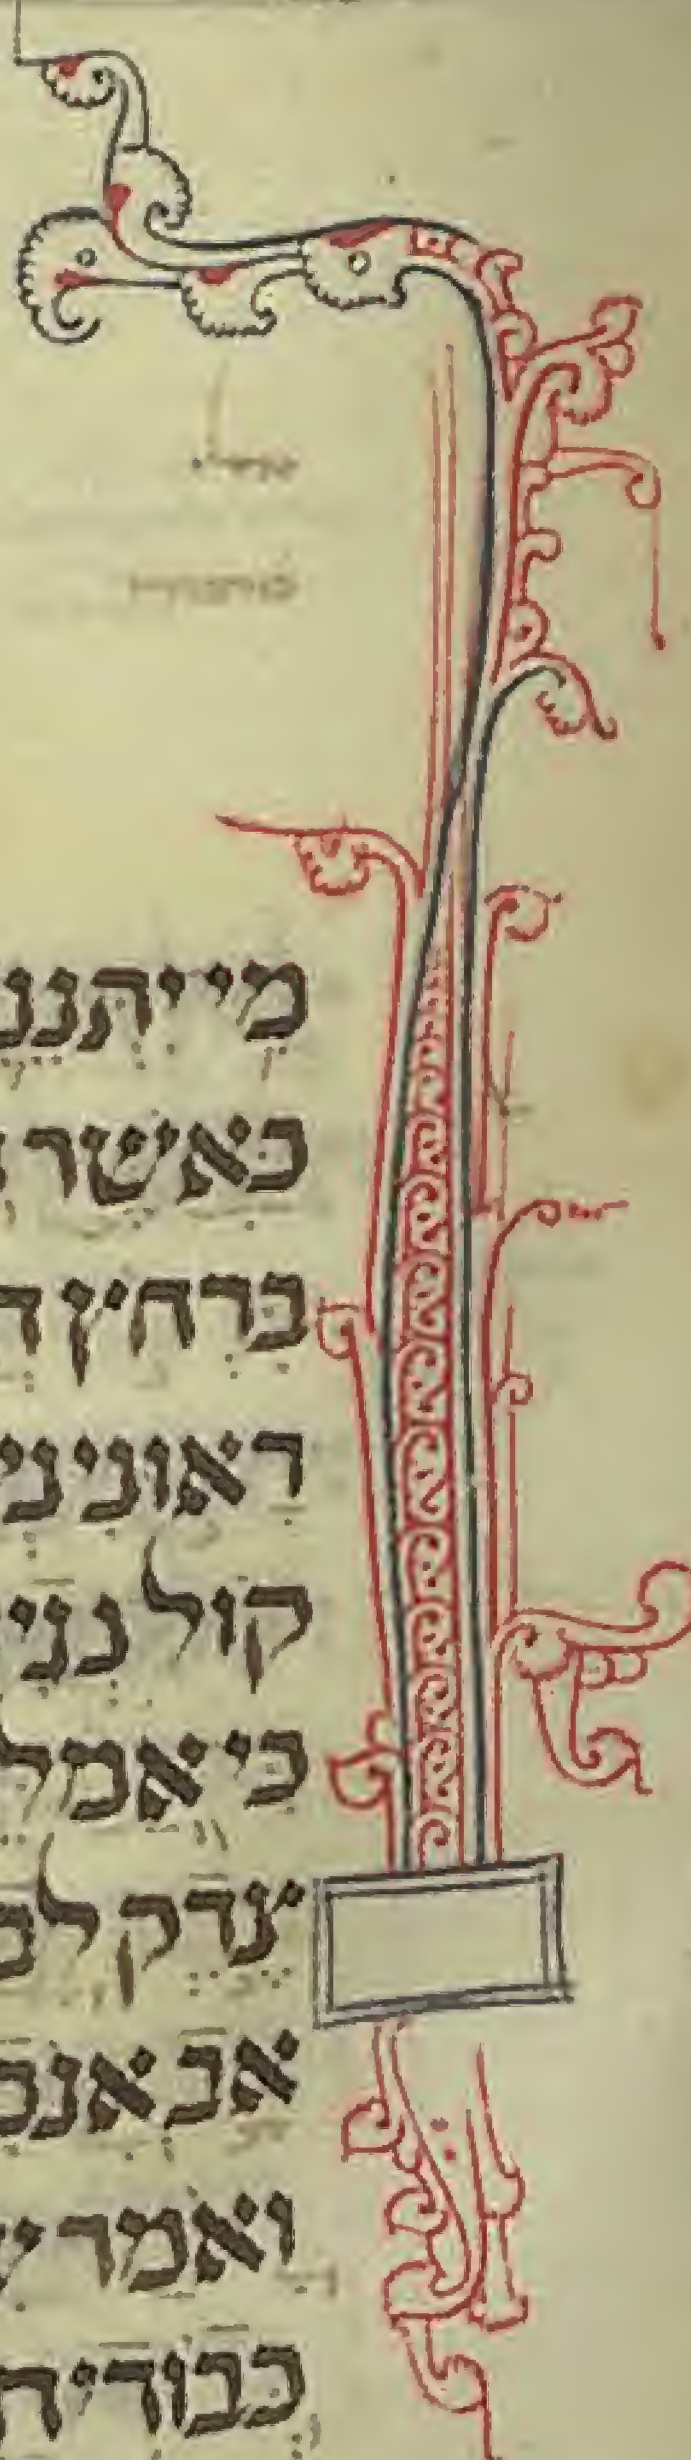 מי יתננ
כאשר
ברחץ ה
ראוני נ
קול נגי
כי אמל
צדק לב
אב אנכ
ואמר ע
כבודי ח